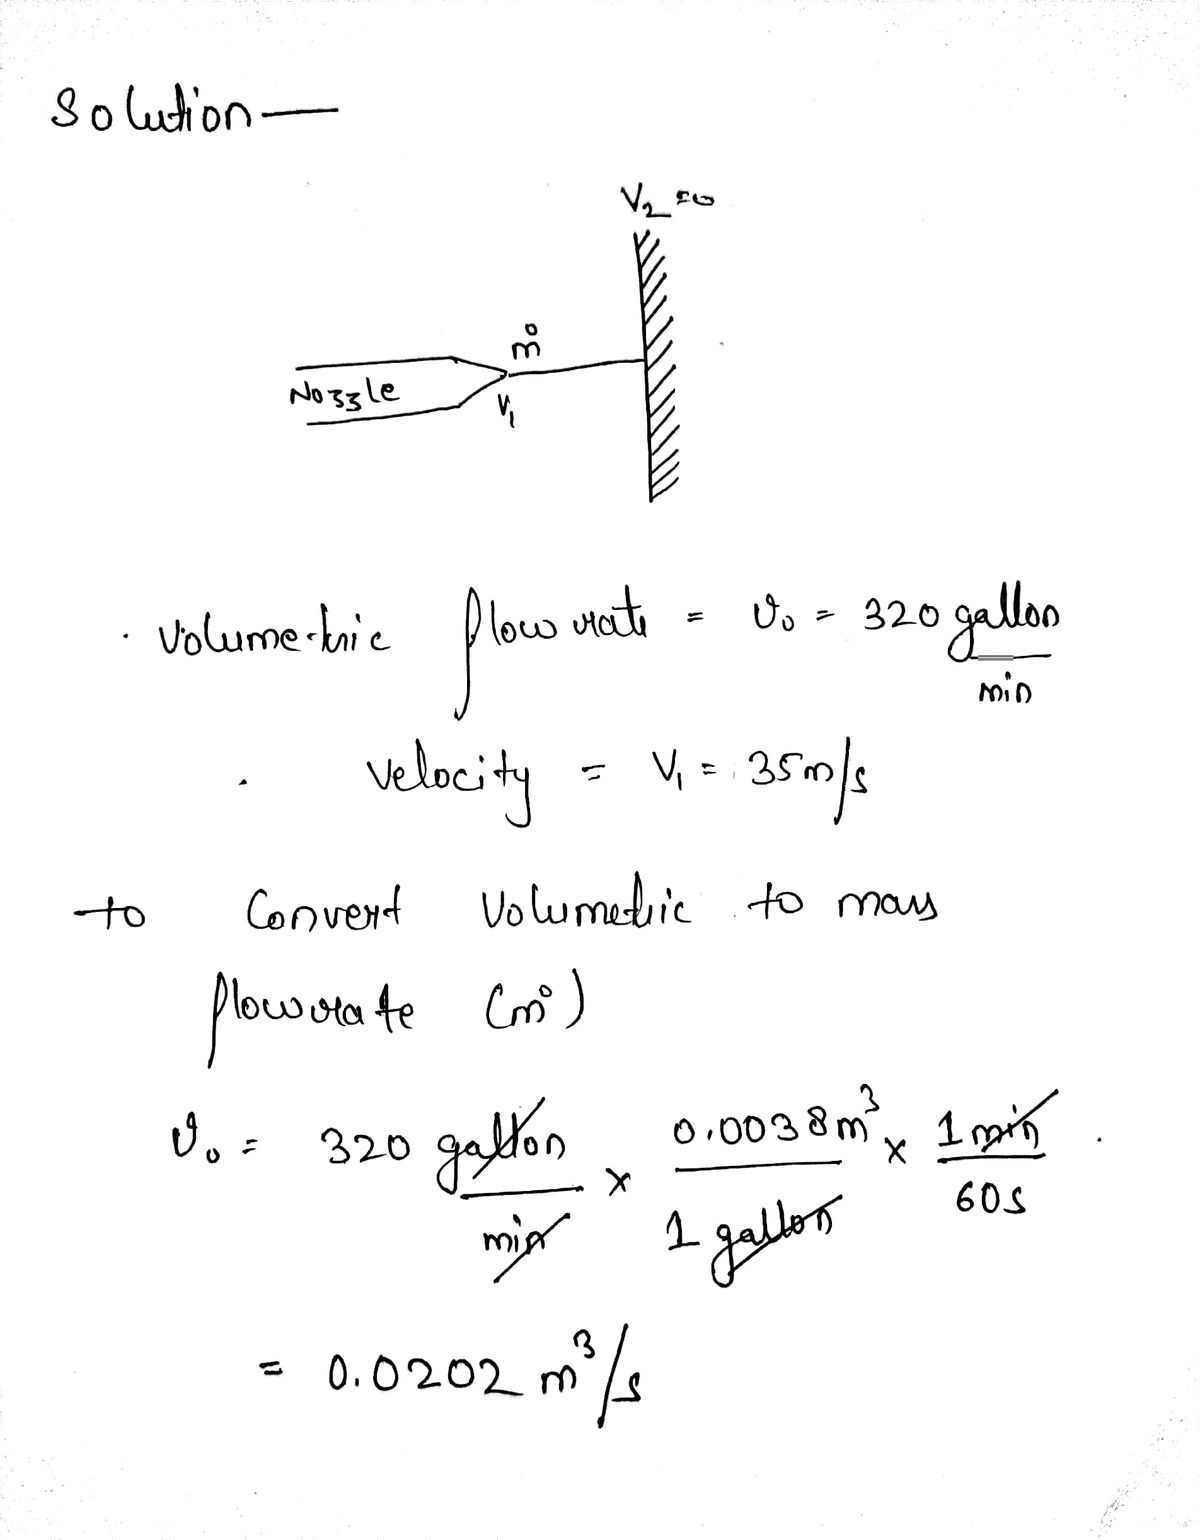 Solution—
V₂ = 0
m°
Nozzle
V₁
· Volumetric flow rate = v₀ = 320 gallon/min
· Velocity = V₁ = 35 m/s
to Convert Volumetric to mass
flowrate (m°)
v₀ = 320 gallon/min × 0.0038 m³/1 gallon × 1 min/60 s .
= 0.0202 m³/s